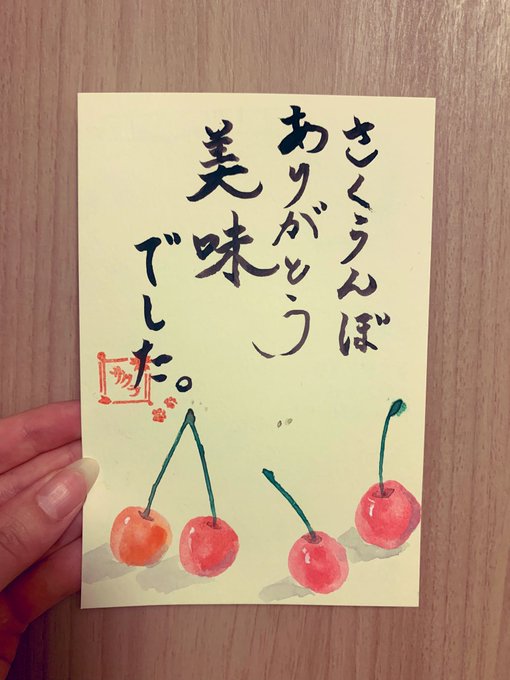 さくらんぼ
ありがとう
美味
でした。
サクラ